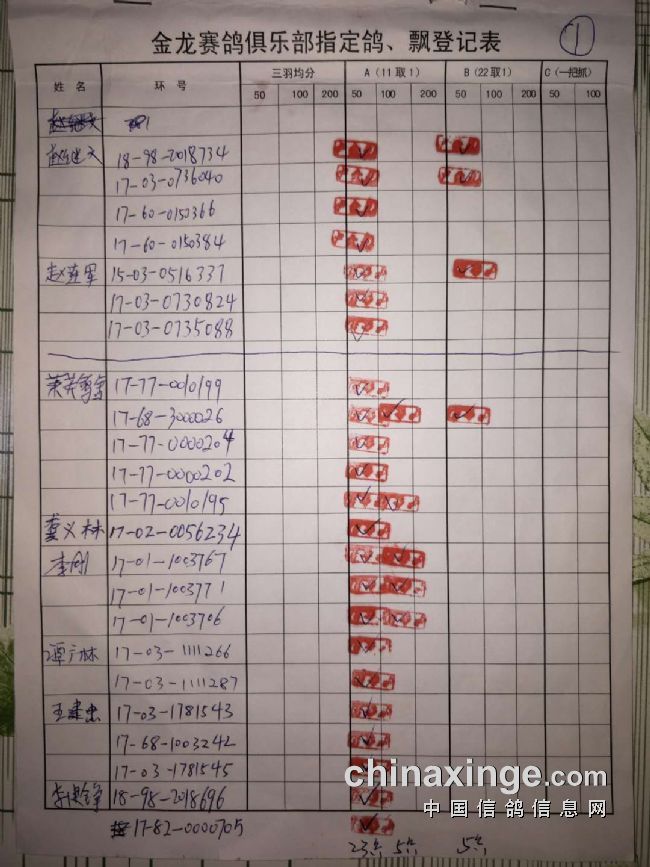 金龙赛鸽俱乐部指定鸽、飘登记表
1
姓名 环号 三羽均分 A（11取1） B（22取1） C（一把抓）
50 100 200 50 100 200 50 100 200 50 100
赵继文 18-98-2018734
17-03-0736040
17-60-0150366
17-60-0150384
赵连军 15-03-0516337
17-03-0730824
17-03-0735088
17-77-0010199
17-68-3000026
17-77-0000204
17-77-0000202
17-77-0010195
义林 17-02-0056234
李刚 17-01-1003767
17-01-1003771
17-01-1003706
谭广林 17-03-1111266
17-03-1111287
王建忠 17-03-1781543
17-68-1003242
17-03-1781545
李 18-98-2018696
17-82-0000705
chinaxinge.com
中国信鸽信息网